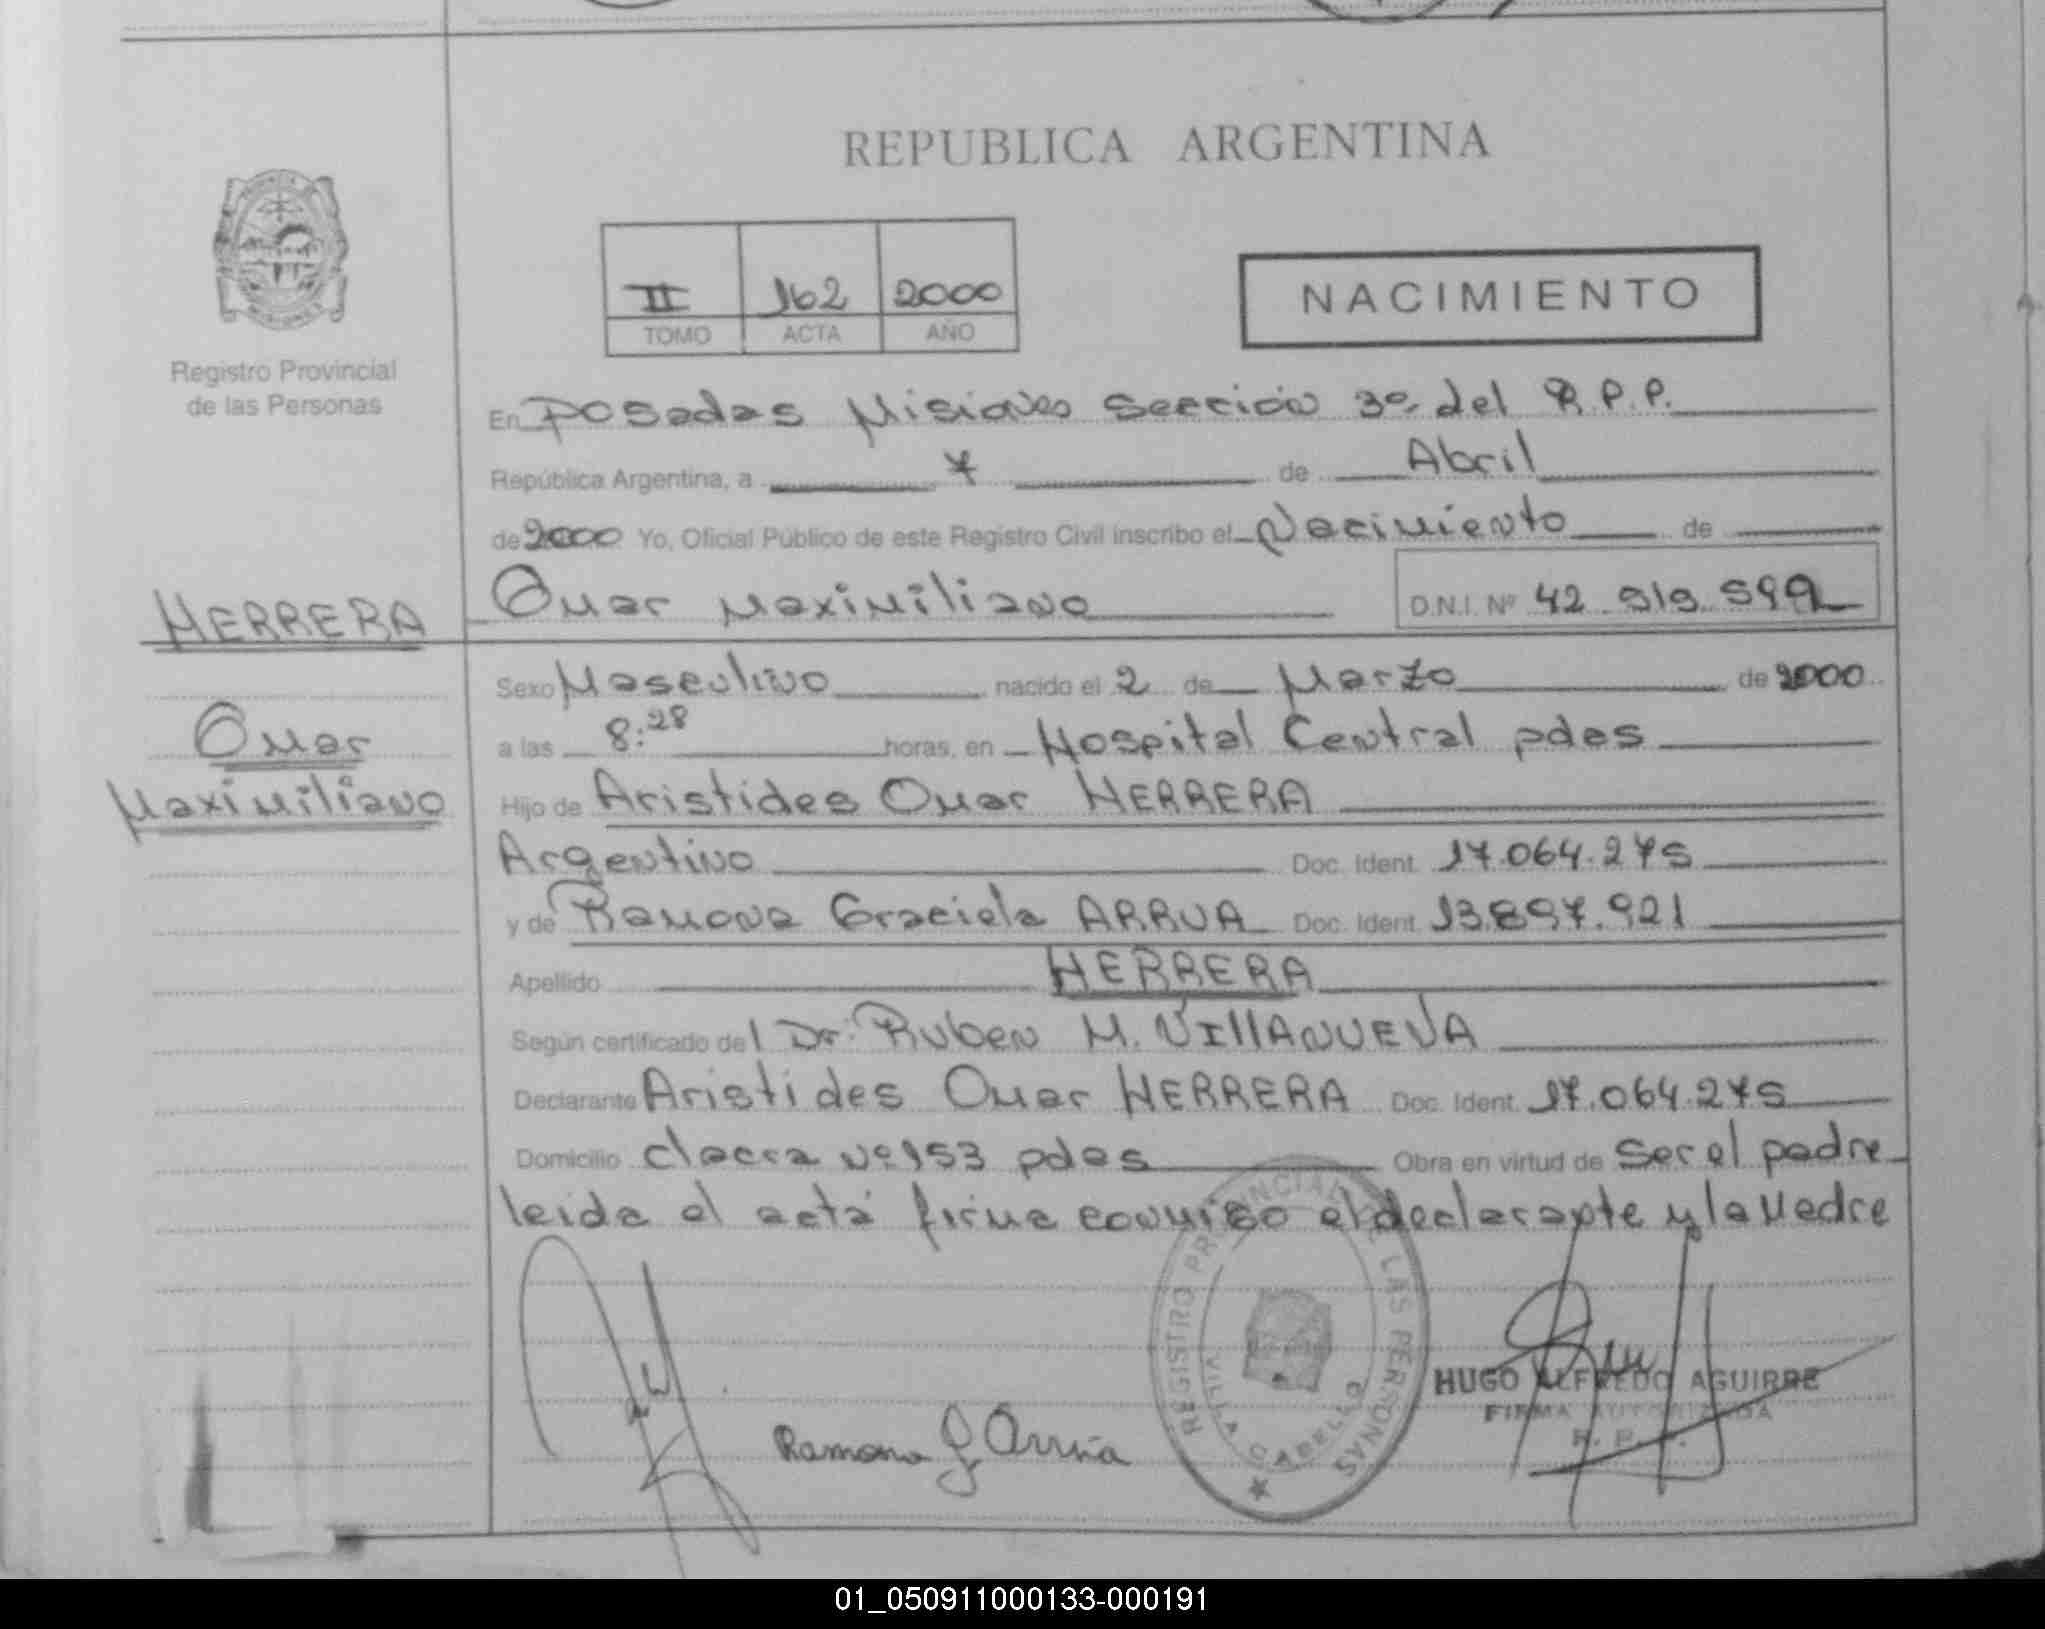 REPUBLICA ARGENTINA
II 162 2000
TOMO ACTA AÑO
NACIMIENTO
Registro Provincial
de las Personas
En Posadas Misiones Sección 3º del R.P.P.
República Argentina, a 7 de Abril
de 2000 Yo, Oficial Público de este Registro Civil inscribo el Nacimiento de
Omar Maximiliano D.N.I. Nº 42.919.599
HERRERA
Omar
Maximiliano
Sexo Masculino nacido el 2 de Marzo de 2000
a las 8:28 horas, en Hospital Central pdas
Hijo de Aristides Omar HERRERA
Argentino Doc. Ident. 17.064.275
y de Ramona Graciela ARRUA Doc. Ident. 13.897.921
Apellido HERRERA
Según certificado del Dr: Ruben M. VIllANUEVA
Declarante Aristides Omar HERRERA Doc. Ident. 17.064.275
Domicilio chacra Nº 153 pdas Obra en virtud de ser el padre
leida el acta firma conmigo el declarante y la Madre
Ramona G Arrúa
REGISTRO PROVINCIAL DE LAS PERSONAS
VILLA CABELLO
HUGO ALFREDO AGUIRRE
FIRMA AUTORIZADA
R. P. P.
01_050911000133-000191